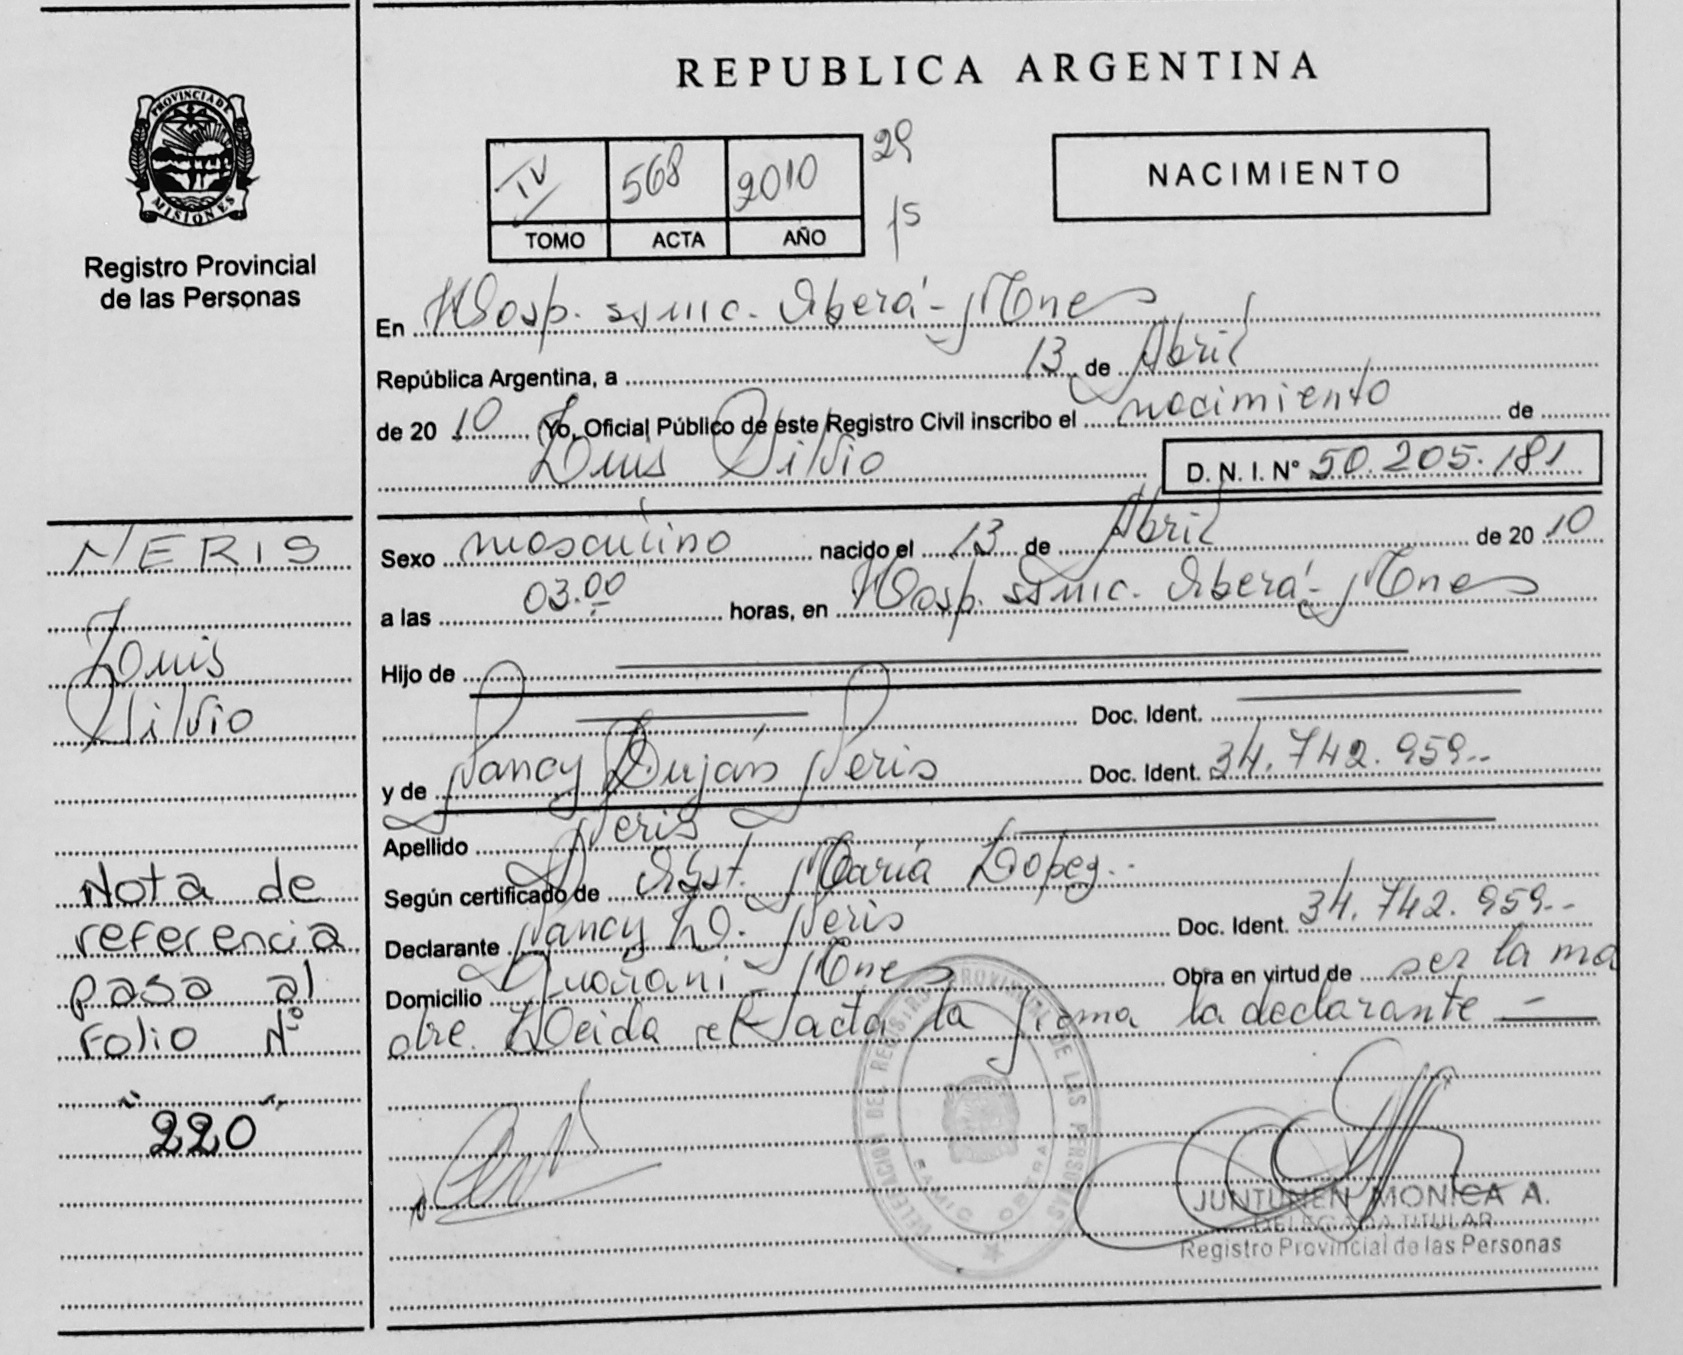 REPUBLICA ARGENTINA
PROVINCIA DE
MISIONES
Registro Provincial
de las Personas
IV 568 2010 29
15
TOMO ACTA AÑO
NACIMIENTO
En Hosp. ssmic. Oberá - Mnes
República Argentina, a 13 de Abril
de 20 10 Yo, Oficial Público de este Registro Civil inscribo el nacimiento de
Luis Silvio D. N. I. N° 50.205.181
NERIS
Luis
Silvio
Sexo masculino nacido el 13 de Abril de 20 10
a las 03.00 horas, en Hosp. ssmic. Oberá - Mnes
Hijo de
Doc. Ident.
y de Nancy Luján Neris Doc. Ident. 34.742.959..
Apellido Neris
Según certificado de Obst. María Lopez..
Declarante Nancy L. Neris Doc. Ident. 34.742.959..
Domicilio Guaraní - Mnes Obra en virtud de ser la ma
dre. Leida el acta la firma la declarante -
Nota de
referencia
pasa al
Folio N°
220
DELEGACION DEL REGISTRO PROVINCIAL DE LAS PERSONAS
OBERA
JUNTUNEN MONICA A.
DELEGADA TITULAR
Registro Provincial de las Personas